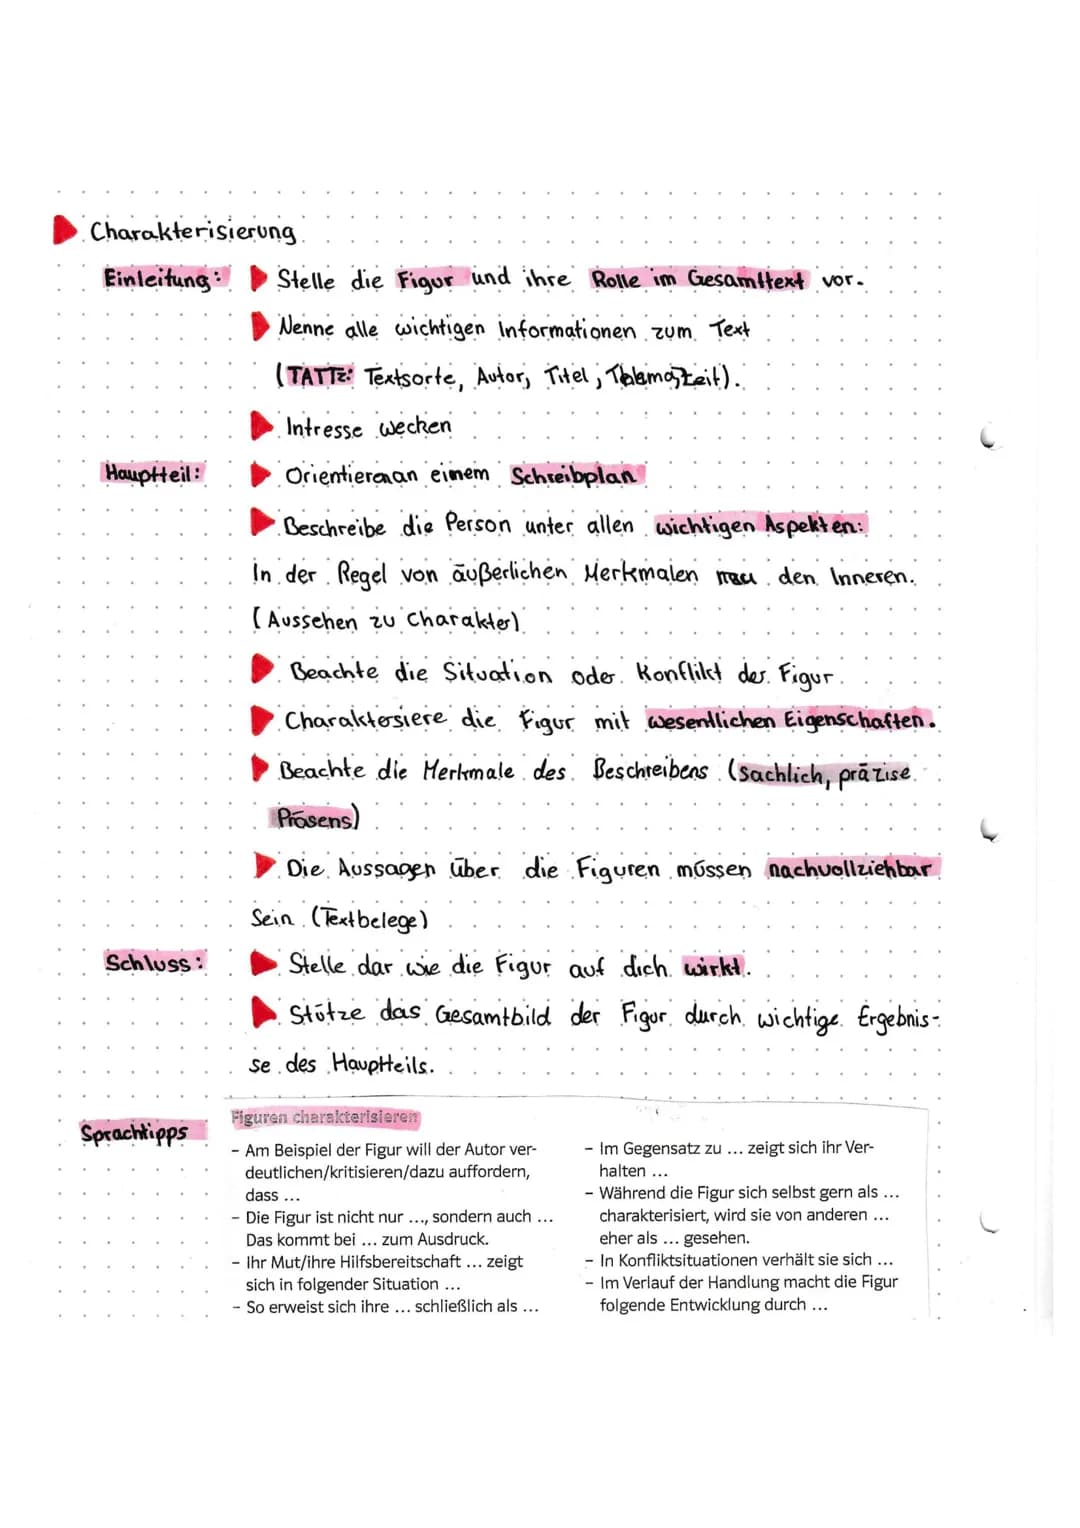 Charakterisierung
Einleitung: Stelle die Figur und ihre Rolle im Gesamttext vor.
Nenne alle wichtigen Informationen zum Text
(TATTZ: Textsorte, Autor, Titel, Zeit).
Intresse wecken
Hauptteil: Orientieren an einem Schreibplan
Beschreibe die Person unter allen wichtigen Aspekten:
In der Regel von äußerlichen Merkmalen den Inneren.
(Aussehen zu Charakter)
Beachte die Situation oder Konflikt der Figur.
Charaktersiere die Figur mit wesentlichen Eigenschaften.
Beachte die Merkmale des Beschreibens (sachlich, präzise
Präsens)
Die Aussagen über die Figuren müssen nachvollziehbar
Sein (Textbelege)
Schluss: Stelle dar wie die Figur auf dich wirkt.
Stütze das Gesamtbild der Figur durch wichtige Ergebnis-
se des Hauptteils.
Sprachtipps
Figuren charakterisieren
– Am Beispiel der Figur will der Autor ver-
deutlichen/kritisieren/dazu auffordern,
dass ...
– Die Figur ist nicht nur ..., sondern auch ...
Das kommt bei ... zum Ausdruck.
– Ihr Mut/ihre Hilfsbereitschaft ... zeigt
sich in folgender Situation ...
– So erweist sich ihre ... schließlich als ...
– Im Gegensatz zu ... zeigt sich ihr Ver-
halten ...
– Während die Figur sich selbst gern als ...
charakterisiert, wird sie von anderen ...
eher als ... gesehen.
– In Konfliktsituationen verhält sie sich ...
– Im Verlauf der Handlung macht die Figur
folgende Entwicklung durch ...